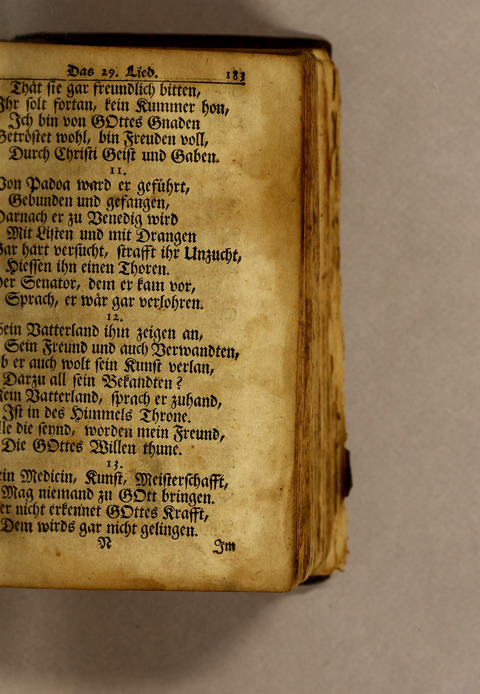 Das 29. Lied. 183
Thät sie gar freundlich bitten,
Ihr solt fortan, kein Kummer hon,
Ich bin von GOttes Gnaden
Getröstet wohl, bin Freuden voll,
Durch Christi Geist und Gaben.
11.
Von Padoa ward er geführt,
Gebunden und gefangen,
Darnach er zu Venedig wird
Mit Listen und mit Drangen
Gar hart versucht, strafft ihr Unzucht,
Hiessen ihn einen Thoren.
Der Senator, dem er kam vor,
Sprach, er wär gar verlohren.
12.
Sein Vatterland ihm zeigen an,
Sein Freund und auch Verwandten,
Ob er auch wolt sein Kunst verlan,
Darzu all sein Bekandten?
Mein Vatterland, sprach er zuhand,
Ist in des Himmels Throne.
Alle die seynd, worden mein Freund,
Die GOttes Willen thune.
13.
Medicin, Kunst, Meisterschafft,
Mag niemand zu GOtt bringen.
Wer nicht erkennet GOttes Krafft,
Dem wirds gar nicht gelingen.
N Im